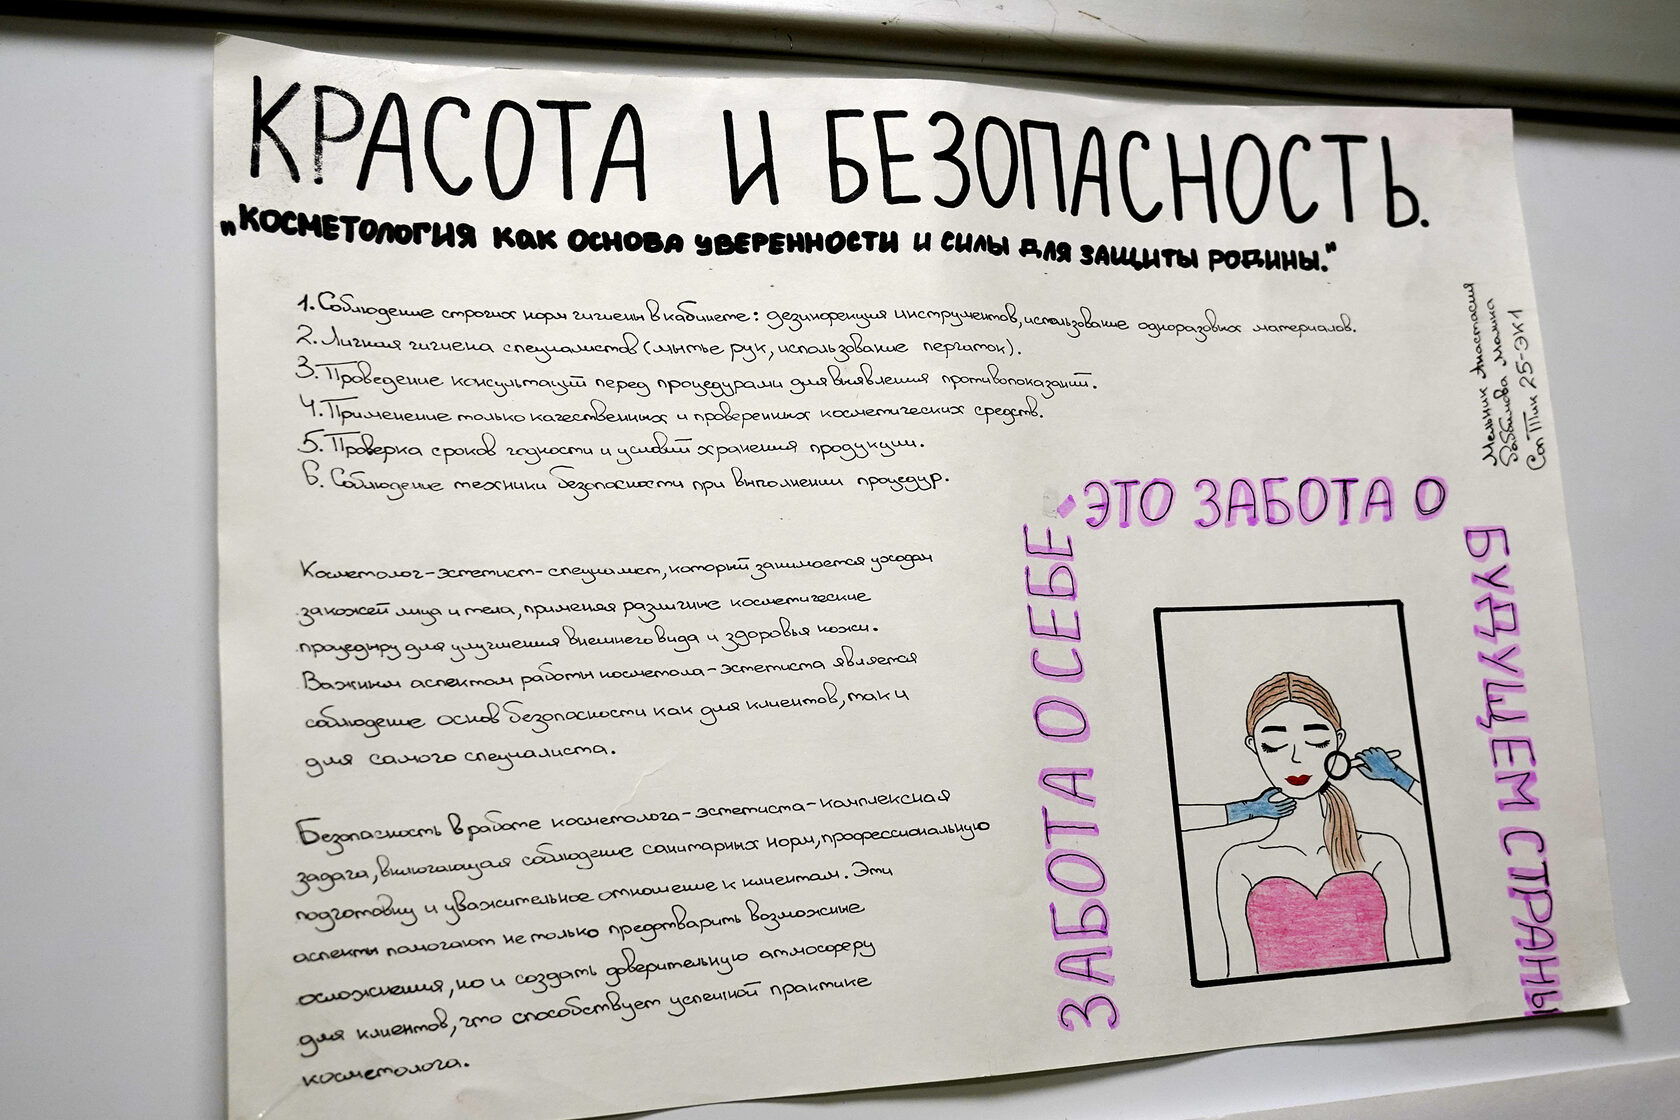 КРАСОТА И БЕЗОПАСНОСТЬ.
„КОСМЕТОЛОГИЯ как ОСНОВА УВЕРЕННОСТИ И СИЛЫ ДЛЯ ЗАЩИТЫ РОДИНЫ."
1. Соблюдение строгих норм гигиены в кабинете: дезинфекция инструментов, использование одноразовых материалов.
2. Личная гигиена специалистов (мытье рук, использование перчаток).
3. Проведение консультаций перед процедурами для выявления противопоказаний.
4. Применение только качественных и проверенных косметических средств.
5. Проверка сроков годности и условий хранения продукции.
6. Соблюдение техники безопасности при выполнении процедур.
Косметолог-эстетист- специалист, который занимается уходом
за кожей лица и тела, применяя различные косметические
процедуру для улучшения внешнего вида и здоровья кожи.
Важным аспектом работы косметола-эстетиста является
соблюдение основ безопасности как для клиентов, так и
для самого специалиста.
Безопасность в работе косметолога-эстетиста-комплексная
задача, включающая соблюдение санитарных норм, профессиональную
подготовку и уважительное отношение к клиентам. Эти
аспекты помогают не только предотварить возможные
осложнения, но и создать доверительную атмосферу
для клиентов, что способствует успешной практике
косметолога.
ЗАБОТА О СЕБЕ
-ЭТО ЗАБОТА О
БУДУЩЕМ СТРАНЫ
Мельник Анастасия
25-ЭК1